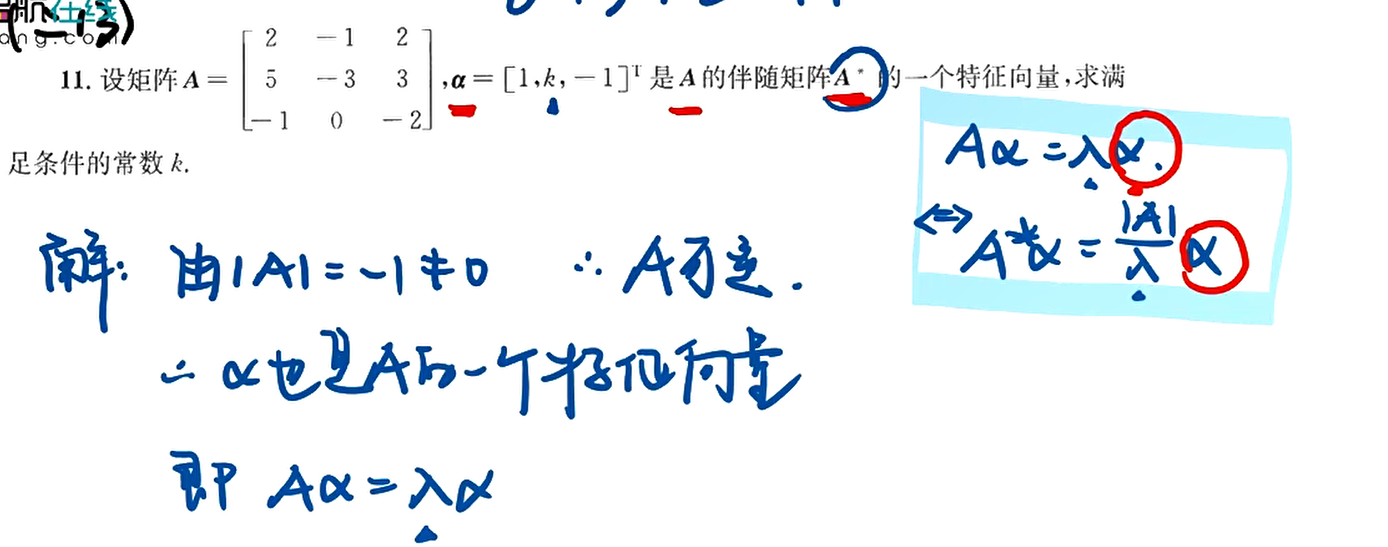 (-13)
ang.com
11. 设矩阵 A = [2 -1 2; 5 -3 3; -1 0 -2], α = [1,k,-1]ᵀ 是 A 的伴随矩阵 A* 的一个特征向量,求满
足条件的常数 k.
Aα = λα.
⟺ A*α = |A|/λ α
解: 由|A| = -1 ≠ 0 ∴ A可逆.
∴ α也是A的一个特征向量
即 Aα = λα